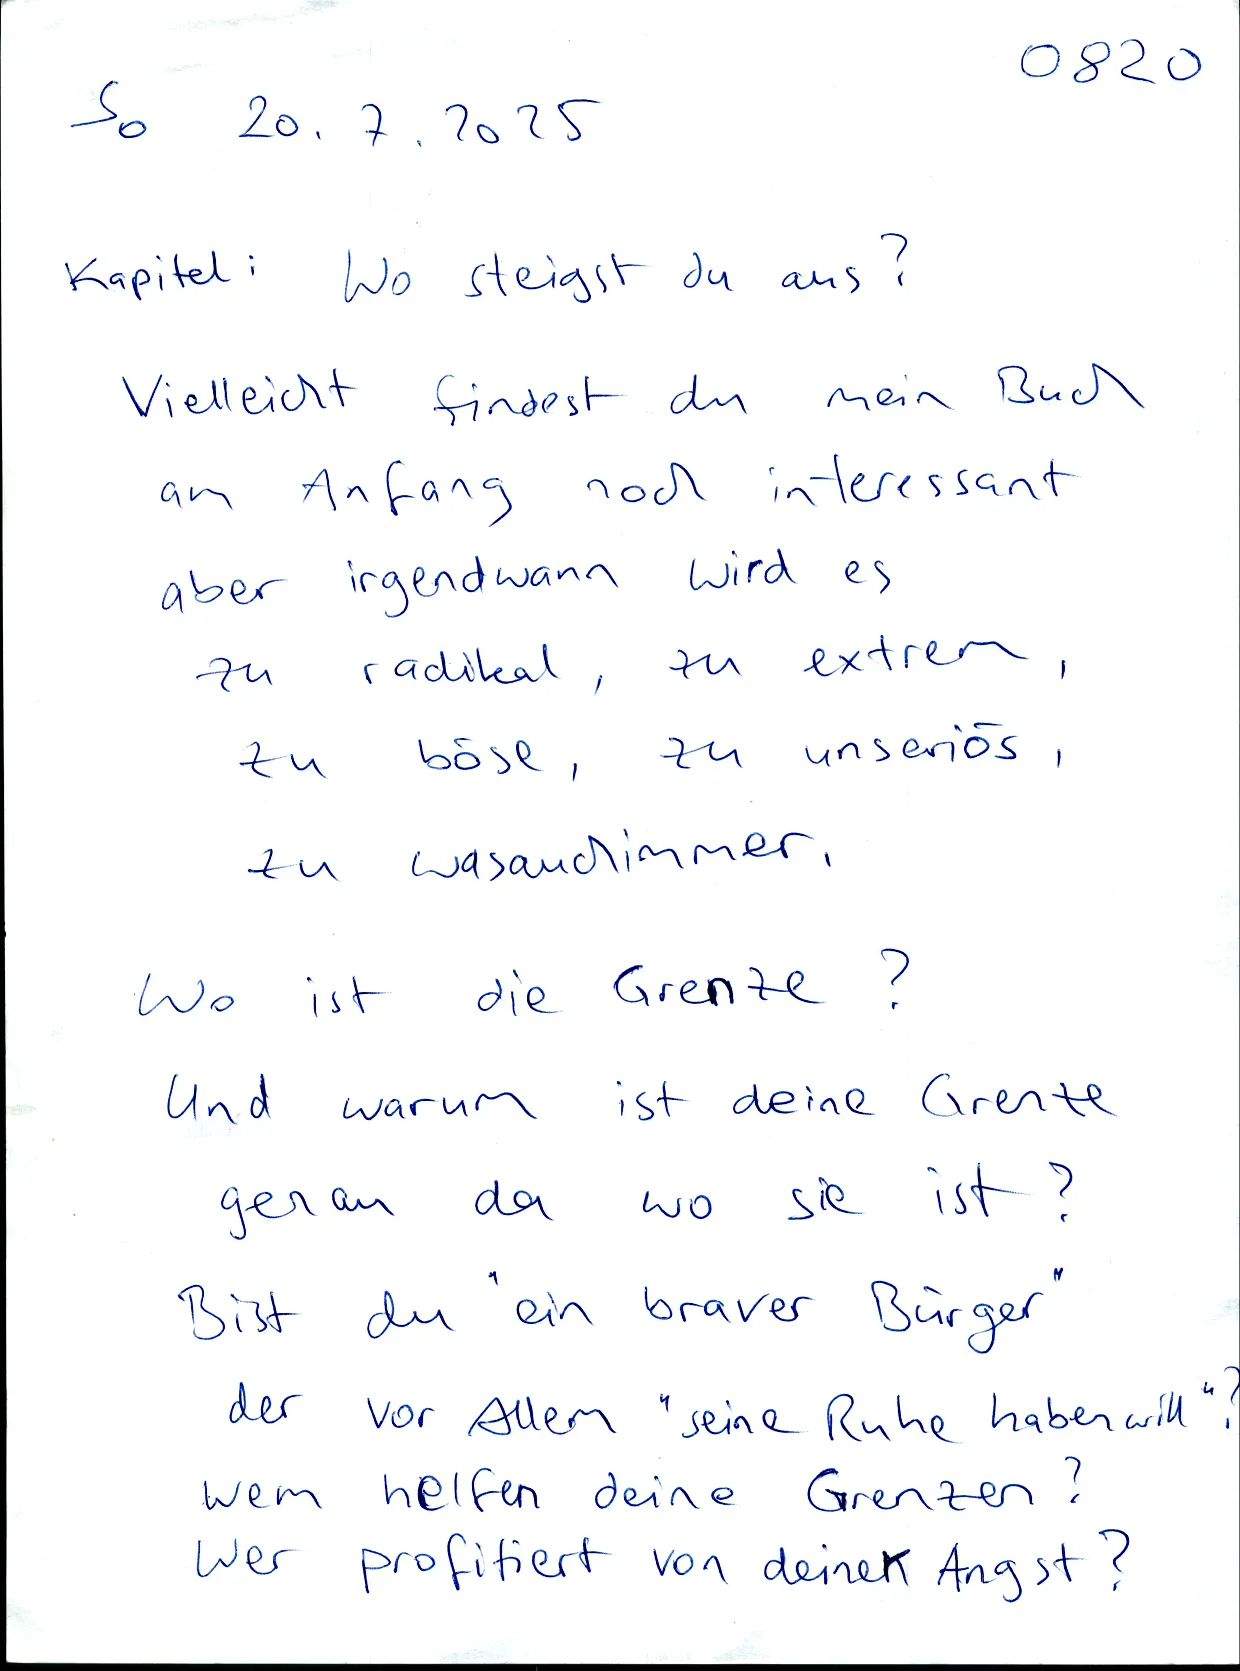 0820
So 20.7.2025
Kapitel: Wo steigst du aus?
Vielleicht findest du mein Buch
am Anfang noch interessant
aber irgendwann wird es
zu radikal, zu extrem,
zu böse, zu unseriös,
zu wasauchimmer.
Wo ist die Grenze?
Und warum ist deine Grenze
genau da wo sie ist?
Bist du "ein braver Bürger"
der vor Allem "seine Ruhe haben will"?
wem helfen deine Grenzen?
Wer profitiert von deiner Angst?